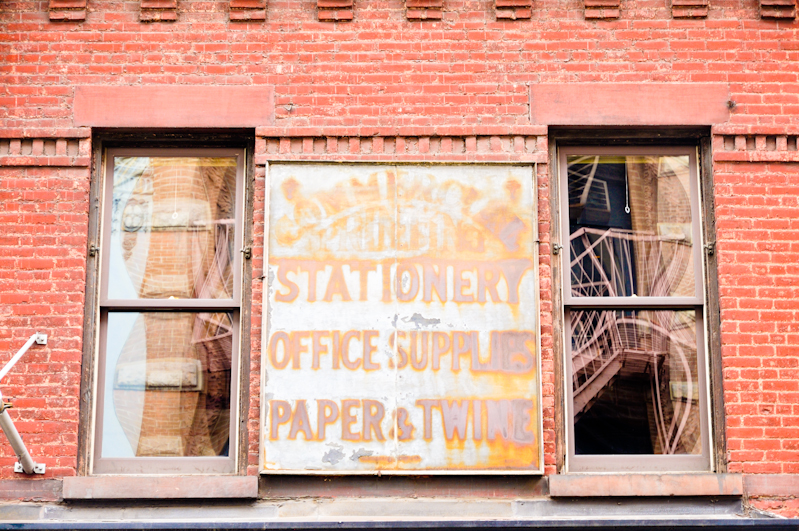 STATIONERY
OFFICE SUPPLIES
PAPER & TWINE